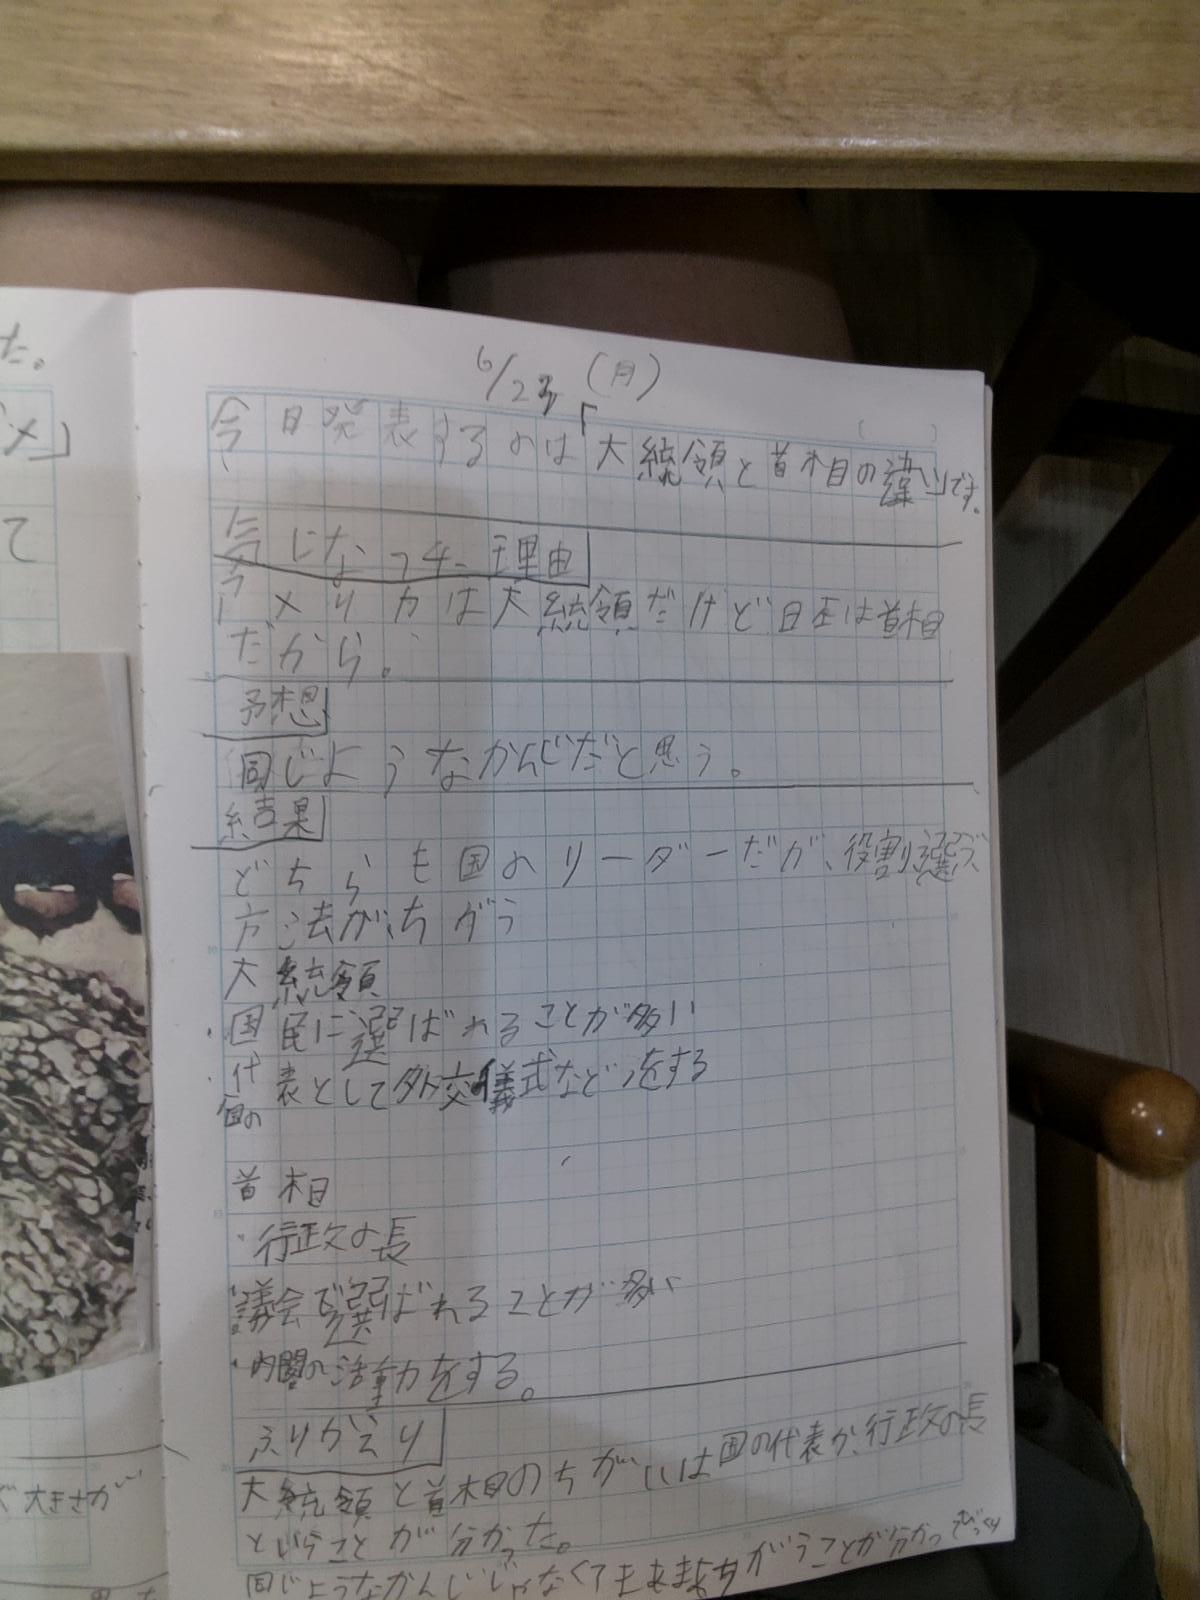 た。
て
6/23 (月)
今日発表するのは「大統領と首相の違いです。
気になった理由
アメリカは大統領だけど日本は首相
だから。
予想
同じようなかんじだと思う。
結果
どちらも国のリーダーだが、役割、選ぶ
方法がちがう
大統領
・国民に選ばれることが多い
・代表として外交儀式などをする
国の
首相
・行政の長
・議会で選ばれることが多い
・内閣の活動をする。
ふりかえり
大統領と首相のちがいは国の代表か、行政の長
ということが分かった。
同じようなかんじじゃなくて ちがうことが分かっ びっくり
大きさが